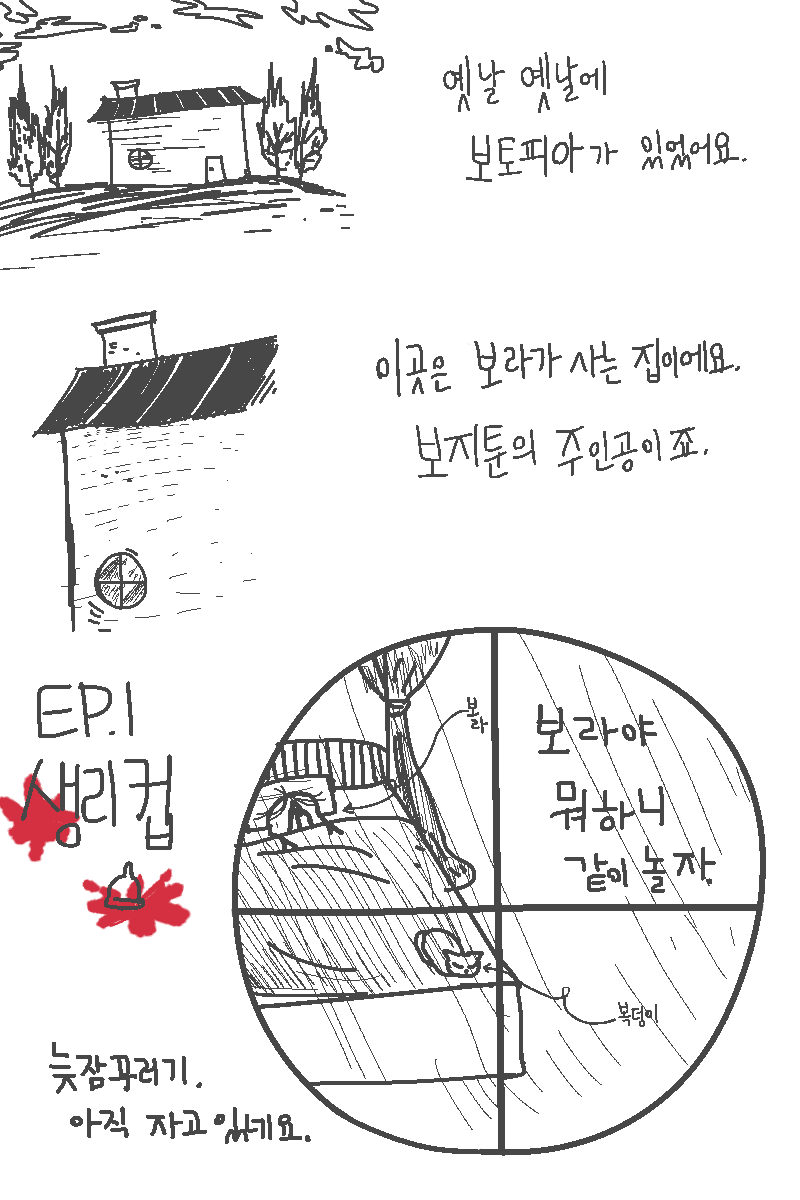 옛날 옛날에
보토피아가 있었어요.
이곳은 보라가 사는 집이에요.
보지툰의 주인공이죠.
EP.1
생리컵
보라
보라야
뭐하니
같이 놀자.
복덩이
늦잠꾸러기.
아직 자고 있네요.